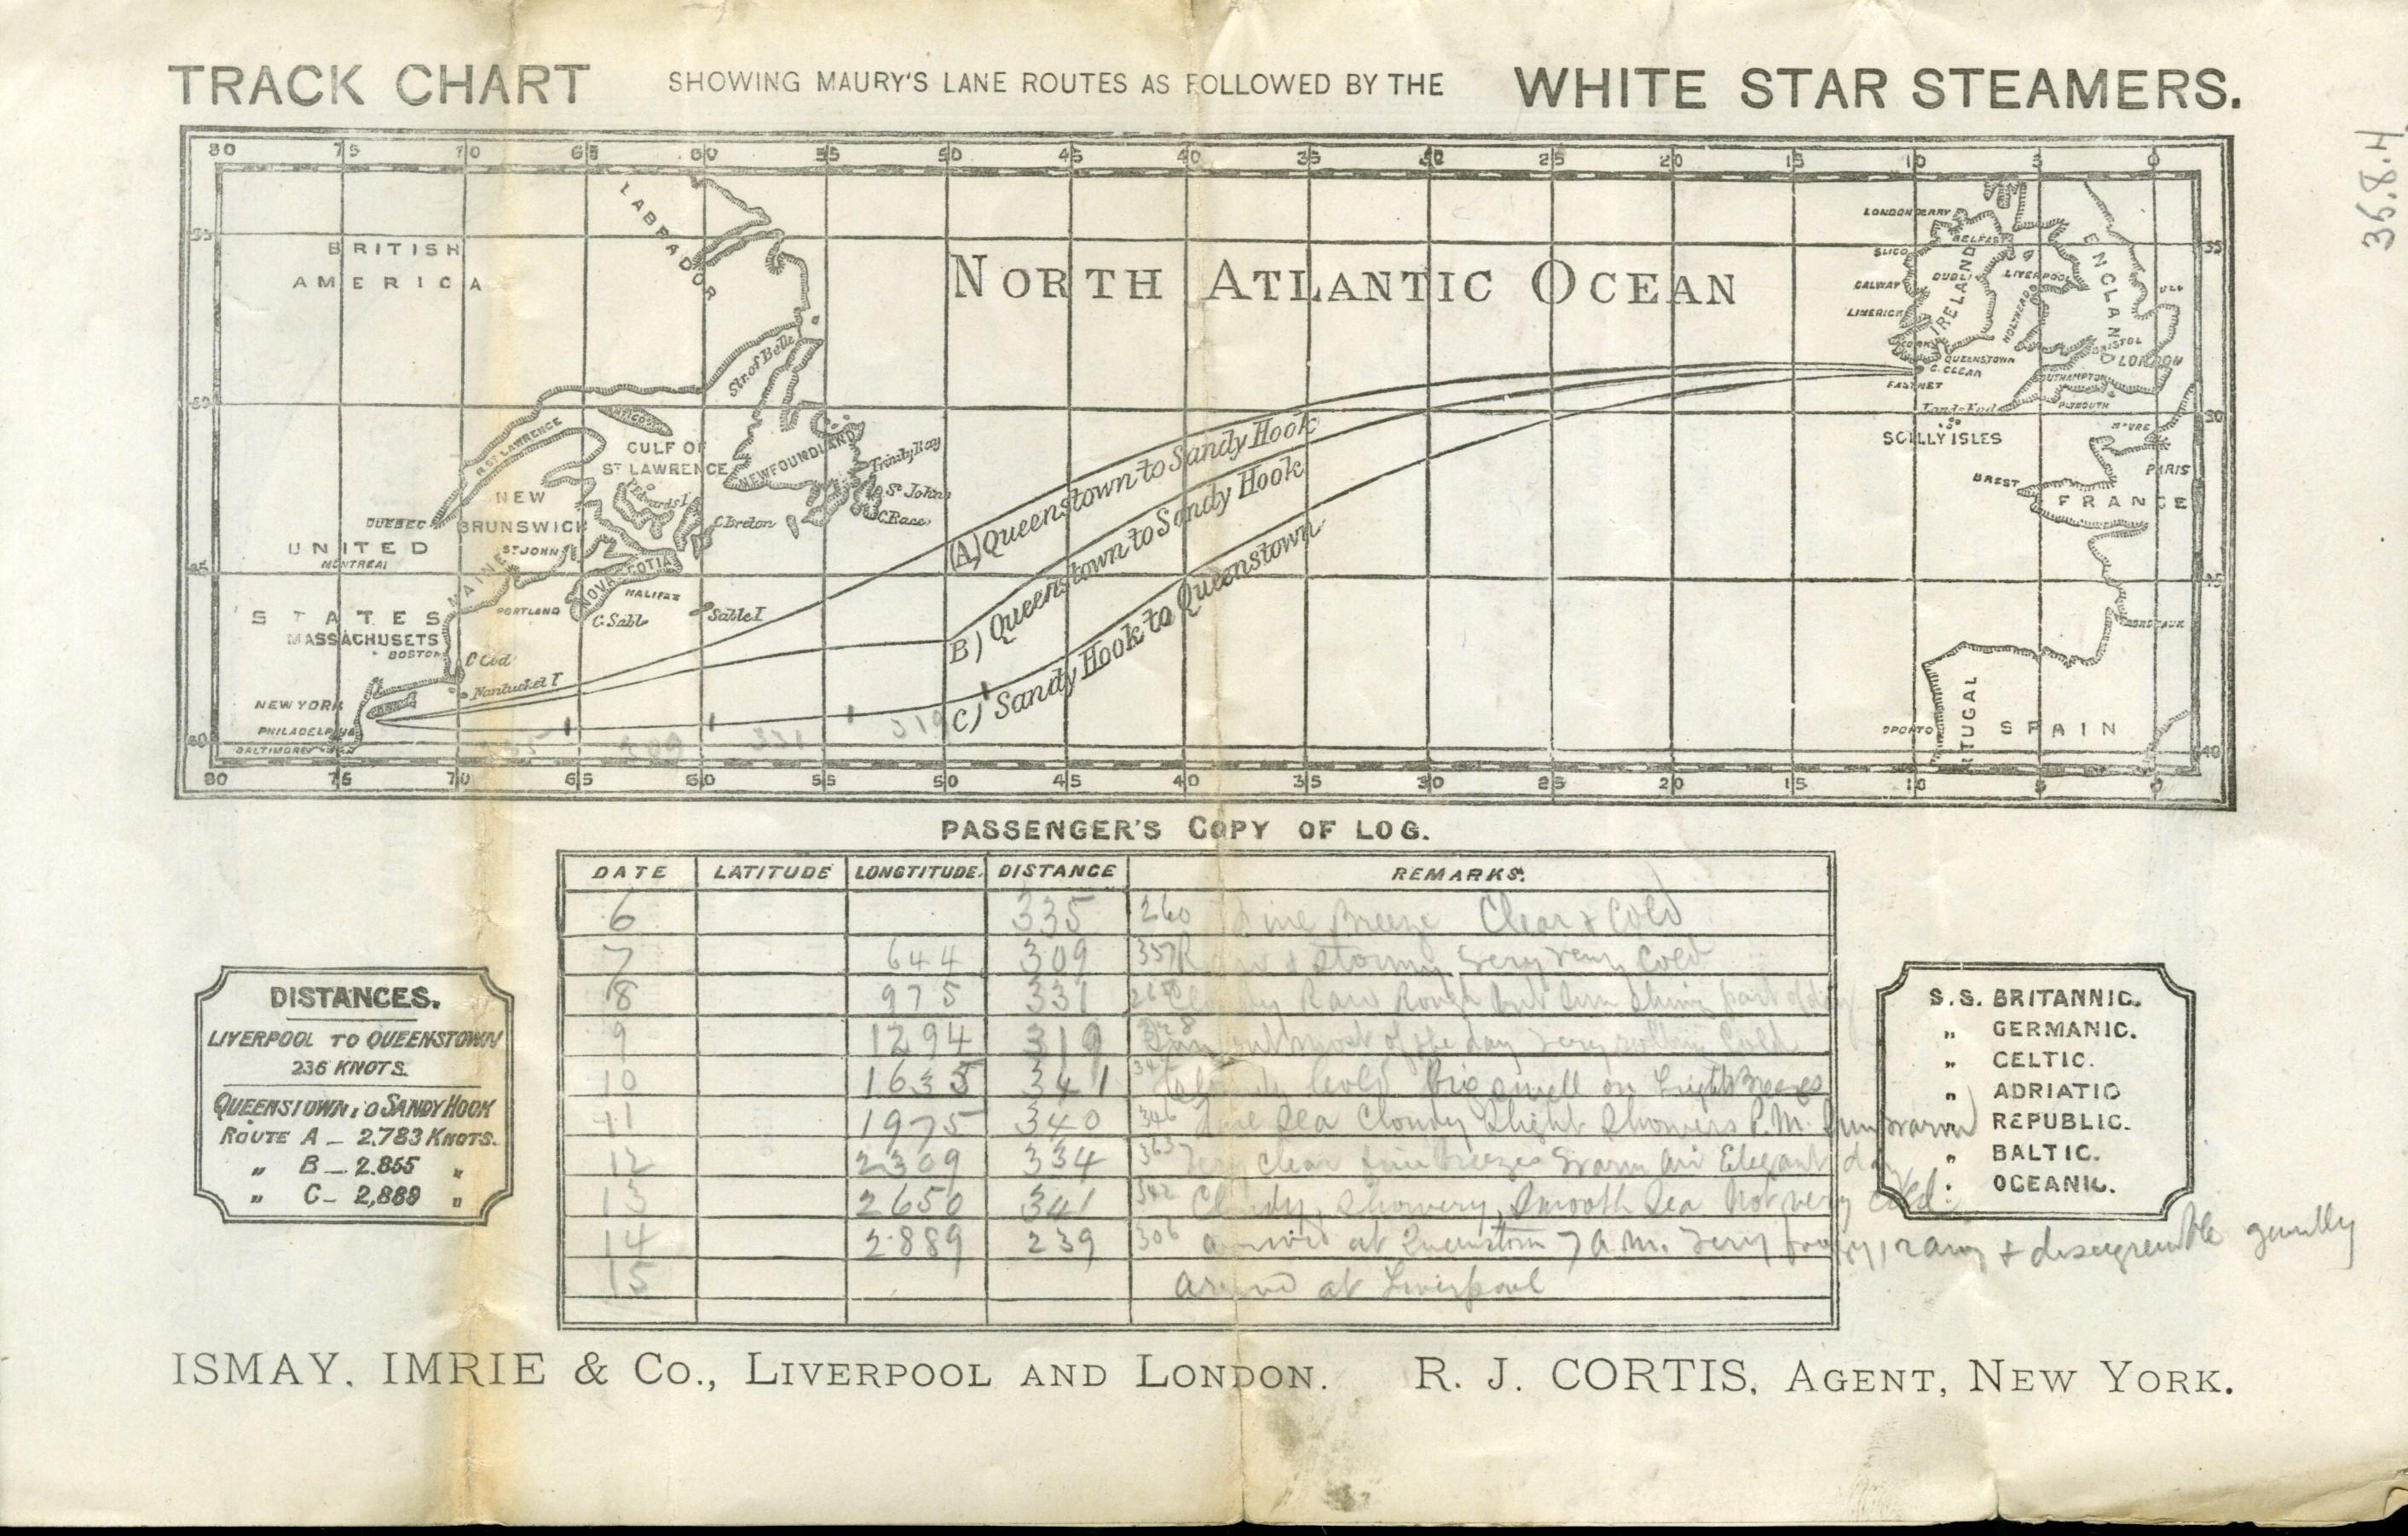 TRACK CHART SHOWING MAURY'S LANE ROUTES AS FOLLOWED BY THE WHITE STAR STEAMERS.
36.8.4
80 75 70 65 60 55 50 45 40 35 30 25 20 15 10 5 0
LABRADOR
LONDONDERRY
55 BRITISH 55
BELFAST
AMERICA
NORTH ATLANTIC OCEAN
SLIGO
ENGLAND
DUBLIN
LIVERPOOL
GALWAY
IRELAND
HOLYHEAD
LIMERICK
Str. of Belle
CORK
BRISTOL
QUEENSTOWN
LONDON
C. CLEAR
FASTNET
SOUTHAMPTON
PLYMOUTH
50 50
ANTICOSTI
Land's End
R. ST LAWRENCE
GULF OF
ST LAWRENCE
NEWFOUNDLAND
Trinity Bay
(A) Queenstown to Sandy Hook
SCILLY ISLES
HAVRE
PARIS
BREST
FRANCE
NEW
BRUNSWICK
P. Edwards I.
St Johns
C. Race
C. Breton
QUEBEC
UNITED
MONTREAL
ST JOHN
MAINE
B) Queenstown to Sandy Hook
45 45
NOVA SCOTIA
HALIFAX
PORTLAND
C. Sable
Sable I
STATES
MASSACHUSETS
BOSTON
C Cod
C) Sandy Hook to Queenstown
BORDEAUX
Nantucket I
NEW YORK
PHILADELPHIA
BALTIMORE
335 309 331 319
OPORTO
PORTUGAL
SPAIN
40 40
80 75 70 65 60 55 50 45 40 35 30 25 20 15 10 5 0
PASSENGER'S COPY OF LOG.
DATE LATITUDE LONGTITUDE. DISTANCE REMARKS.
6 335 260 Fine Breeze Clear & Cold
7 644 309 357 & Stormy Very Very Cold
8 975 331 Cloudy Raw Rough but Sun Shing part of day
9 1294 319 Sun out most of the day Very rolling Cold
10 1635 341 Cloudy Cold Big swell on Light Breezes
11 1975 340 346 Fine Sea Cloudy Slight Showers P.M. Sun warm
12 2309 334 363 Very clear fine breezes Warm Air Elegant day
13 2650 341 342 Cloudy, Showery, Smooth Sea Not very Cold.
14 2.889 239 306 arrived at Queenstown 7 a.m. Very foggy, rainy & disagreeable
15 arrived at Liverpool
DISTANCES.
LIVERPOOL TO QUEENSTOWN
236 KNOTS.
QUEENSTOWN TO SANDY HOOK
ROUTE A — 2,783 KNOTS.
" B — 2.855 "
" C — 2,889 "
S.S. BRITANNIC.
" GERMANIC.
" CELTIC.
" ADRIATIC
" REPUBLIC.
" BALTIC.
" OCEANIC.
ISMAY, IMRIE & Co., LIVERPOOL AND LONDON. R. J. CORTIS, AGENT, NEW YORK.